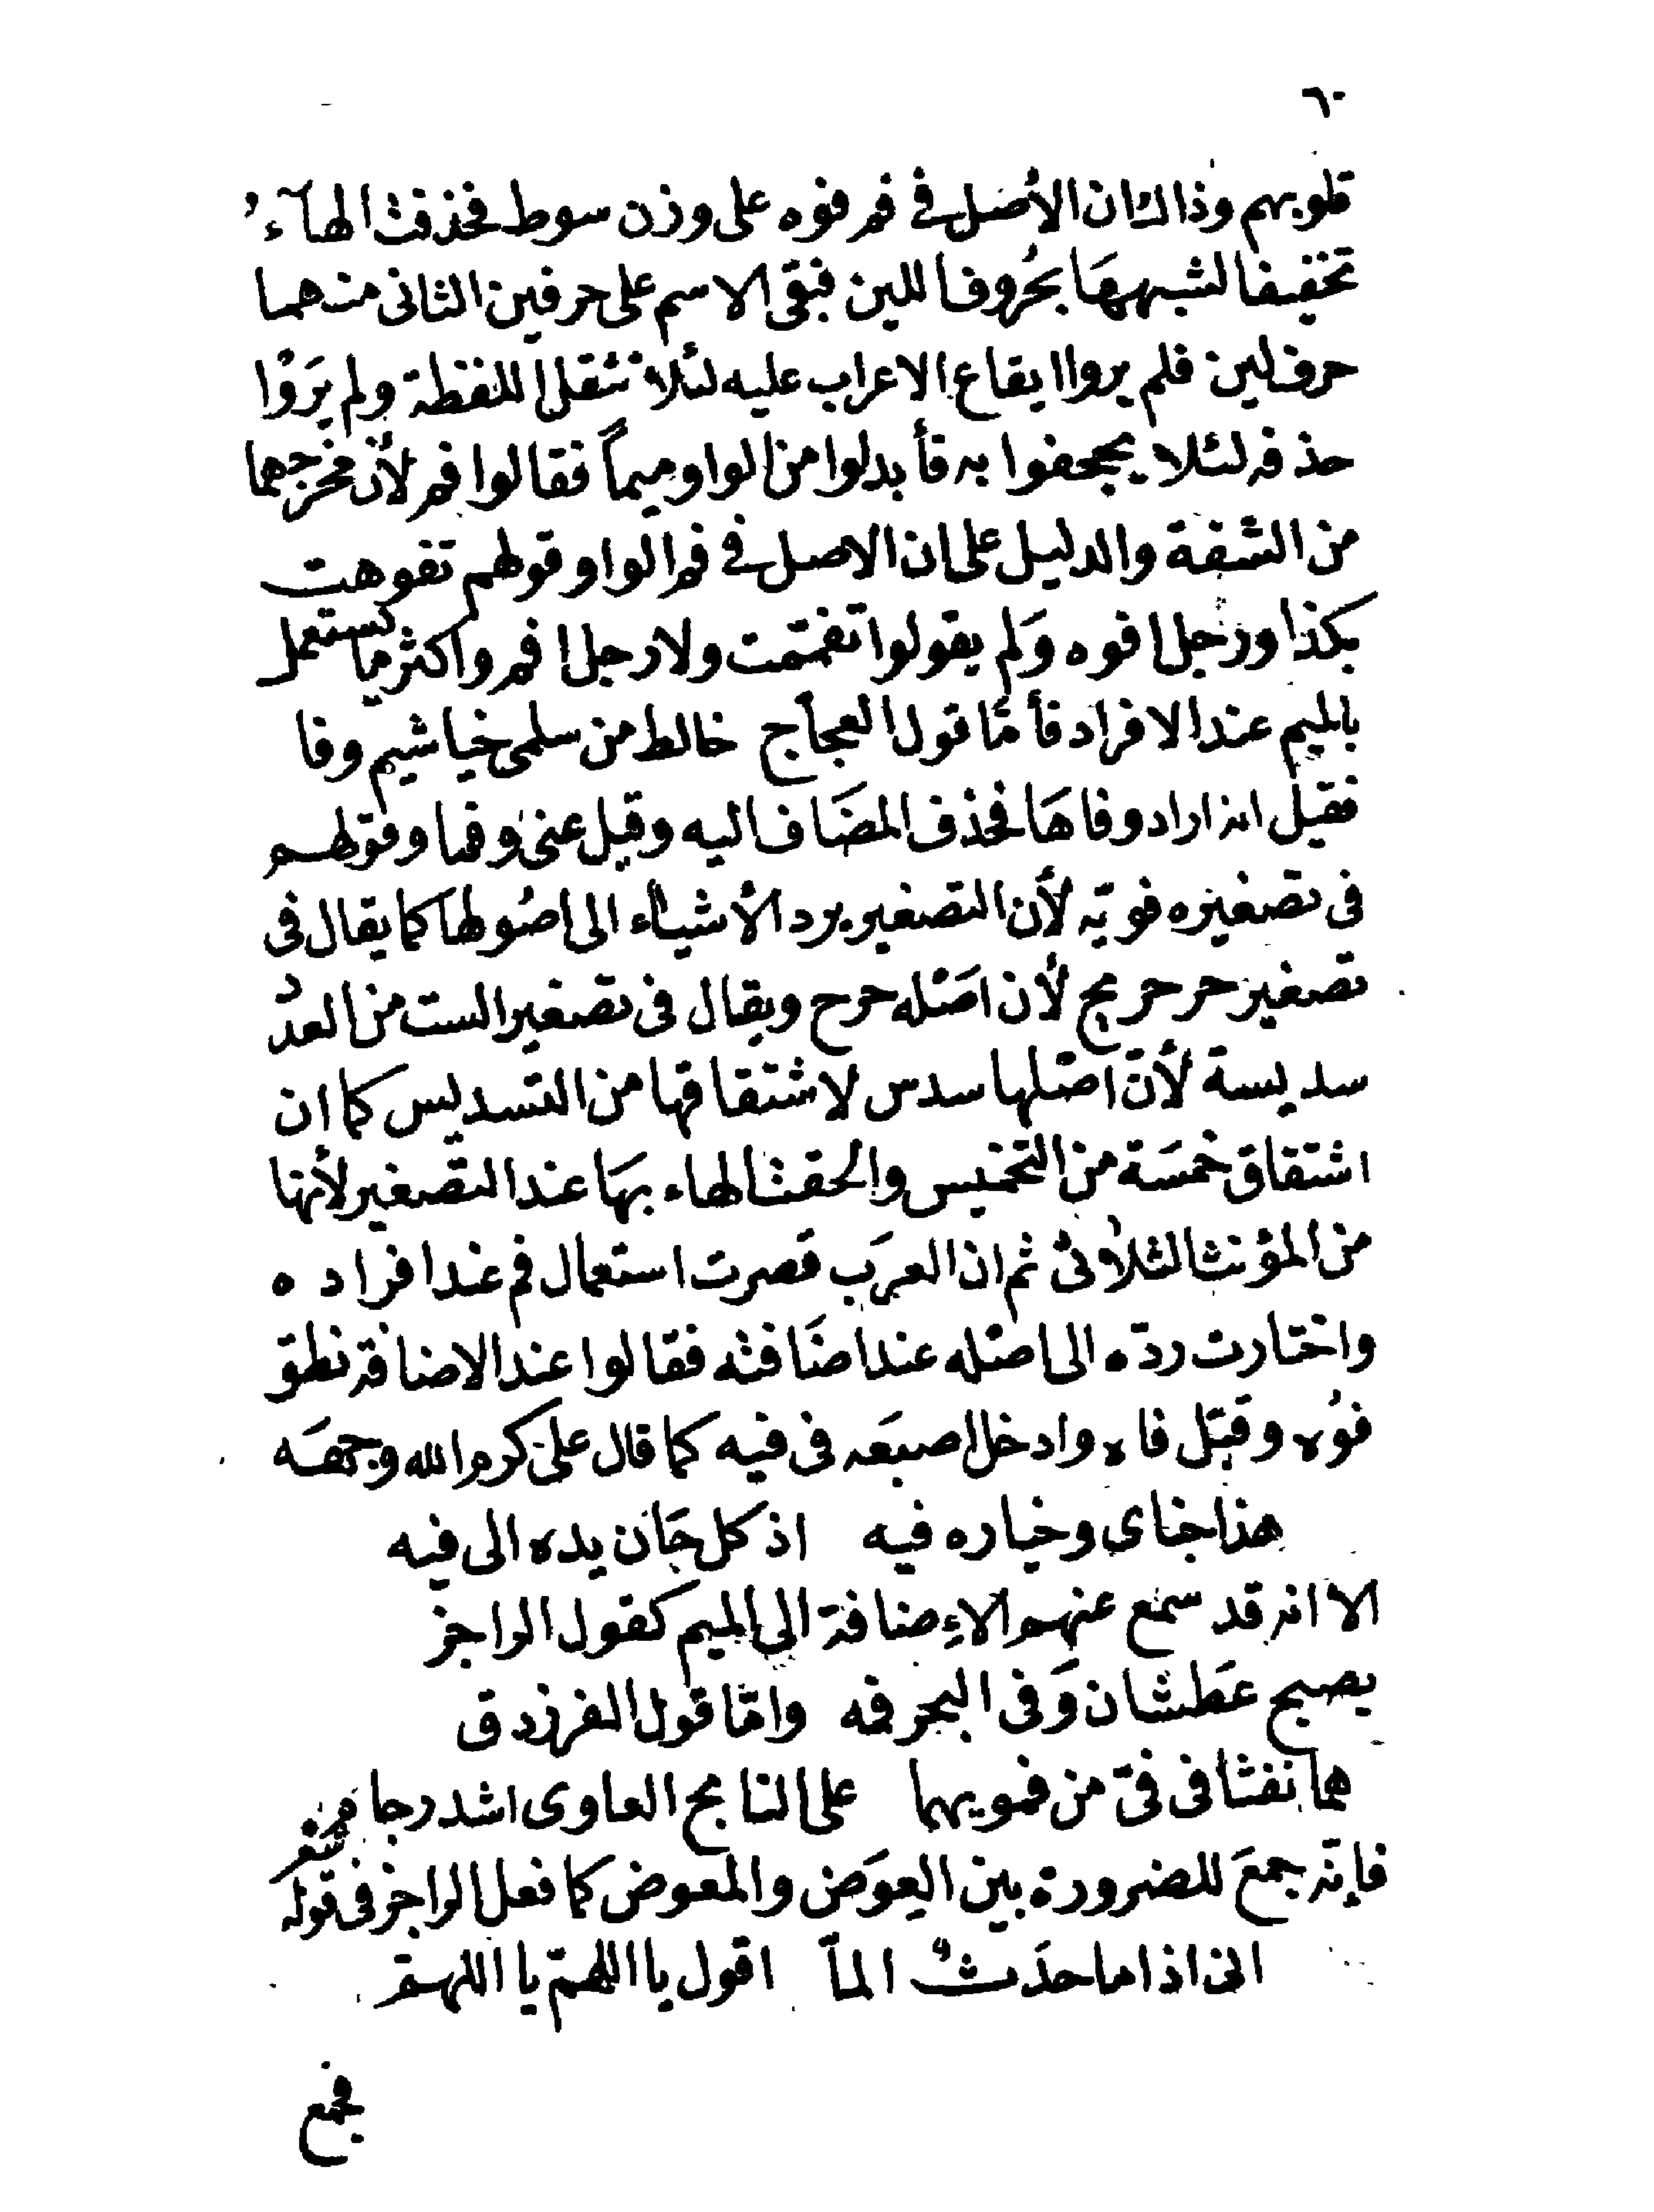 ٦٠
قلوبهم وذاك ان الأصل في فم فوه على وزن سوط فحذفت الهآءُ
تخفيفا لشبهها بحُروف اللين فبقى الاسم على حرفين الثانى منهما
حرف لين فلم يروا ايقاع الاعراب عليه لئلا تثقل اللفظة ولم يَرَوْا
حذفه لئلا يجحفوا به فأبدلوا من الواو ميماً فقالوا فم لأن مخرجهما
من الشفة والدليل على ان الاصل في فم الواو قولهم تفوهت
بكذا ورجل افوه وَلم يقولوا تفمّمت ولا رجل افم واكثر ما يستعمل
بالميم عند الافراد فأمّا قول العجاج خالط من سلمى خياشيم وفا
فقيل انه اراد وفاهَا فحذف المضَاف اليه وقيل عنى وفما وقولهم
فى تصغيره فويّه لأن التصغير يرد الأشياء الى اصُولها كما يقال فى
تصغير حر حريح لأن اصَله حرح ويقال فى تصغير الست من العدد
سديسة لأنّ اصَلها سدس لاشتقاقها من التسديس كما ان
اشتقاق خمسَة من التخميس والحقت الهاء بهَا عند التصغير لأنها
من المؤنث الثلاثى ثم ان العرَب قصرت استعمال فم عند افراده
واختارت ردّه الى اصَله عند اضَافته فقالوا عند الاضافة نطق
فوُه وقبّل فاه وادخل اصبعَه فى فيه كما قال علىّ كرم الله وجهَه
هذا جناى وخياره فيه اذ كل جَان يده الى فيه
الا انه قد سمع عنهم الاِضافة الى الميم كقول الراجز
يصبح عَطشان وَفى البحر فمه وامّا قول الفرزدق
هما نفثا فى فىّ من فمويهما على النابح العاوى اشد رجام
شعر
فإنّه جمعَ للضرورة بين العِوَض والمعوض كما فعل الراجز فى قوله
انى اذا ما حدَثٌ المّا اقول يا اللهمّ يا اللهمّ
فجمع